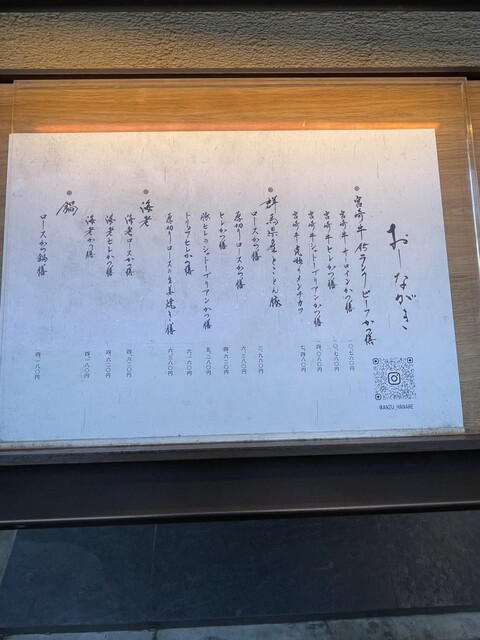 おしながき
● 宮崎牛A5ランク ビーフかつ膳
宮崎牛サーロインかつ膳 一〇、七八〇円
宮崎牛ヒレかつ膳 一〇、七八〇円
宮崎牛シャトーブリアンかつ膳
宮崎牛究極のメンチカツ 七、四八〇円
● 群馬県産 とことん豚
ロースかつ膳 三、九六〇円
厚切りロースかつ膳
ヒレかつ膳 四、六二〇円
豚ヒレのシャトーブリアンかつ膳 五、二八〇円
トリュフヒレかつ膳
厚切りロースたま姜焼き膳
● 海老
海老ロースかつ膳 四、六二〇円
海老ヒレかつ膳 四、六二〇円
海老かつ膳 四、一八〇円
● 鍋
ロースかつ鍋膳 四、一八〇円
@ANZU_HANARE